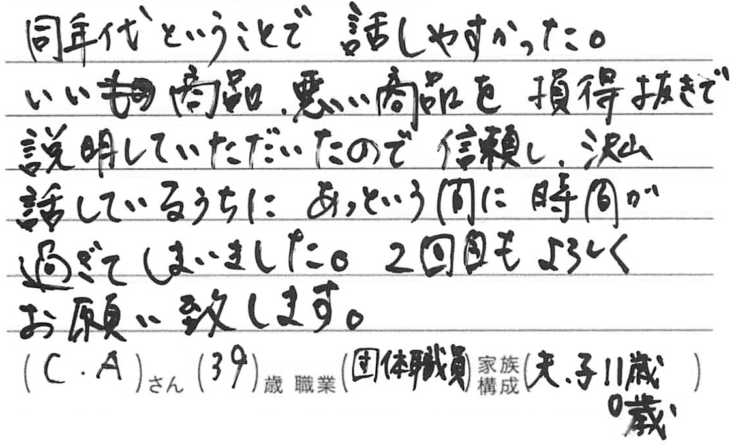 同年代ということで 話しやすかった。
いい商品、悪い商品を 損得抜きで
説明していただいたので 信頼し、沢山
話しているうちに あっという間に 時間が
過ぎてしまいました。2回目もよろしく
お願い致します。
(C.A)さん (39)歳 職業(団体職員)家族構成(夫、子11歳)
0歳